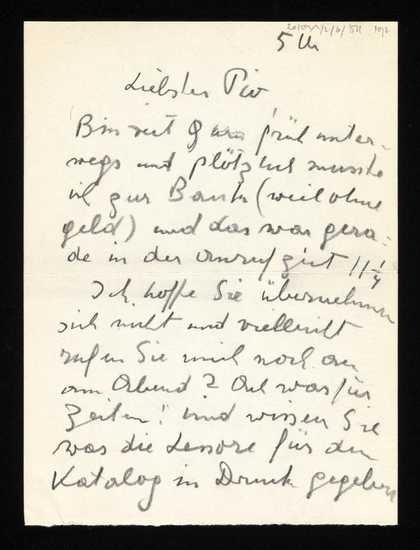 5 Uh
Liebster Pio!
Bin seit 9 Uhr früh unter-
wegs und plötzlich musste
ich zur Bank (weil ohne
geld) und das war gera-
de in der Anrufzeit 11 1/4
Ich hoffe Sie übernehmen
sich nicht und vielleicht
rufen Sie mich noch an
am Abend? Ach was für
Zeiten! und wissen Sie
was die Lessore für den
Katalog in Druck gegeben